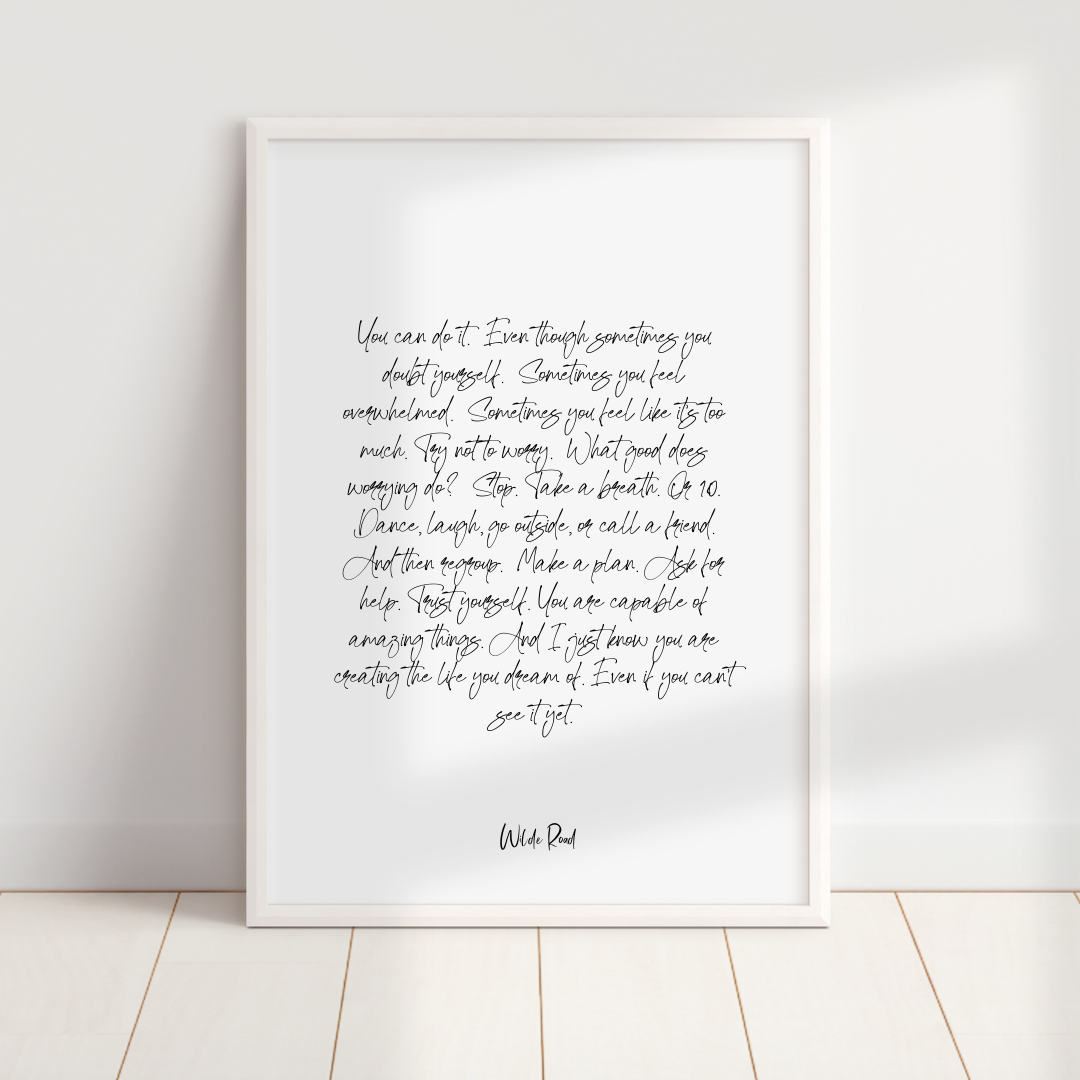 You can do it. Even though sometimes you
doubt yourself. Sometimes you feel
overwhelmed. Sometimes you feel like it's too
much. Try not to worry. What good does
worrying do? Stop. Take a breath. Or 10.
Dance, laugh, go outside, or call a friend.
And then regroup. Make a plan. Ask for
help. Trust yourself. You are capable of
amazing things. And I just know you are
creating the life you dream of. Even if you can't
see it yet.
Wilde Road